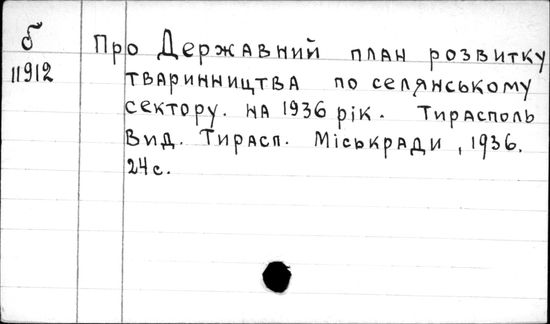 б
11912
Про Державний план розвитку
тваринництва по селянському
сектору. на 1936 рік. Тирасполь
Вид. Тирасп. Міськради, 1936.
24 с.